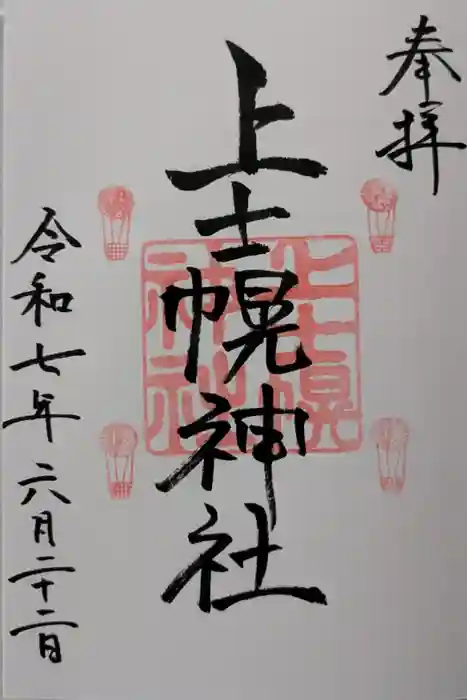 奉拝
上士幌神社
上士幌
神社
令和七年六月二十二日